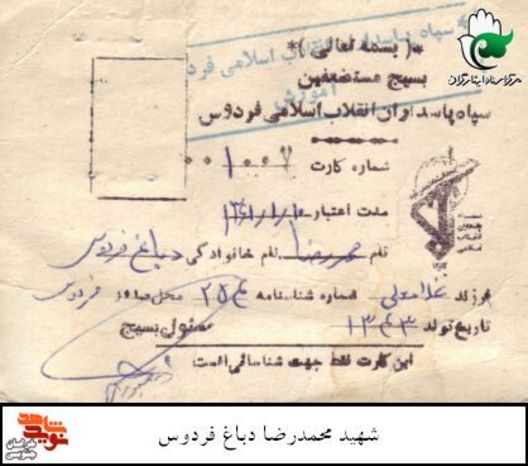 *( بسمه تعالی )*
بسیج مستضعفین
سپاه پاسداران انقلاب اسلامی فردوس
سپاه پاسداران انقلاب اسلامی فردوس
آموزش
مرکز اسناد ایثارگران
شماره کارت ۰۰۱۰۰۷
مدت اعتبار
نام محمدرضا نام خانوادگی دباغ فردوس
فرزند غلامعلی شماره شناسنامه محل صدور فردوس
تاریخ تولد ۱۳۴۳ مسئول بسیج
این کارت فقط جهت شناسائی است
شهید محمدرضا دباغ فردوس
نوید شاهد
خراسان جنوبی